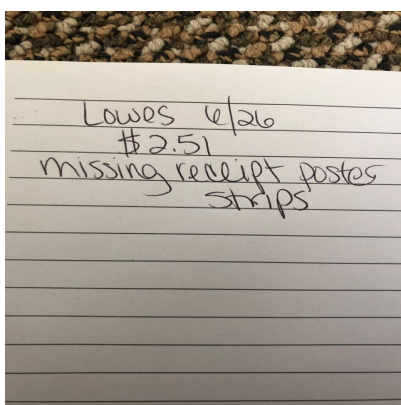 Lowes 6/26
$2.51
missing receipt postes
strips